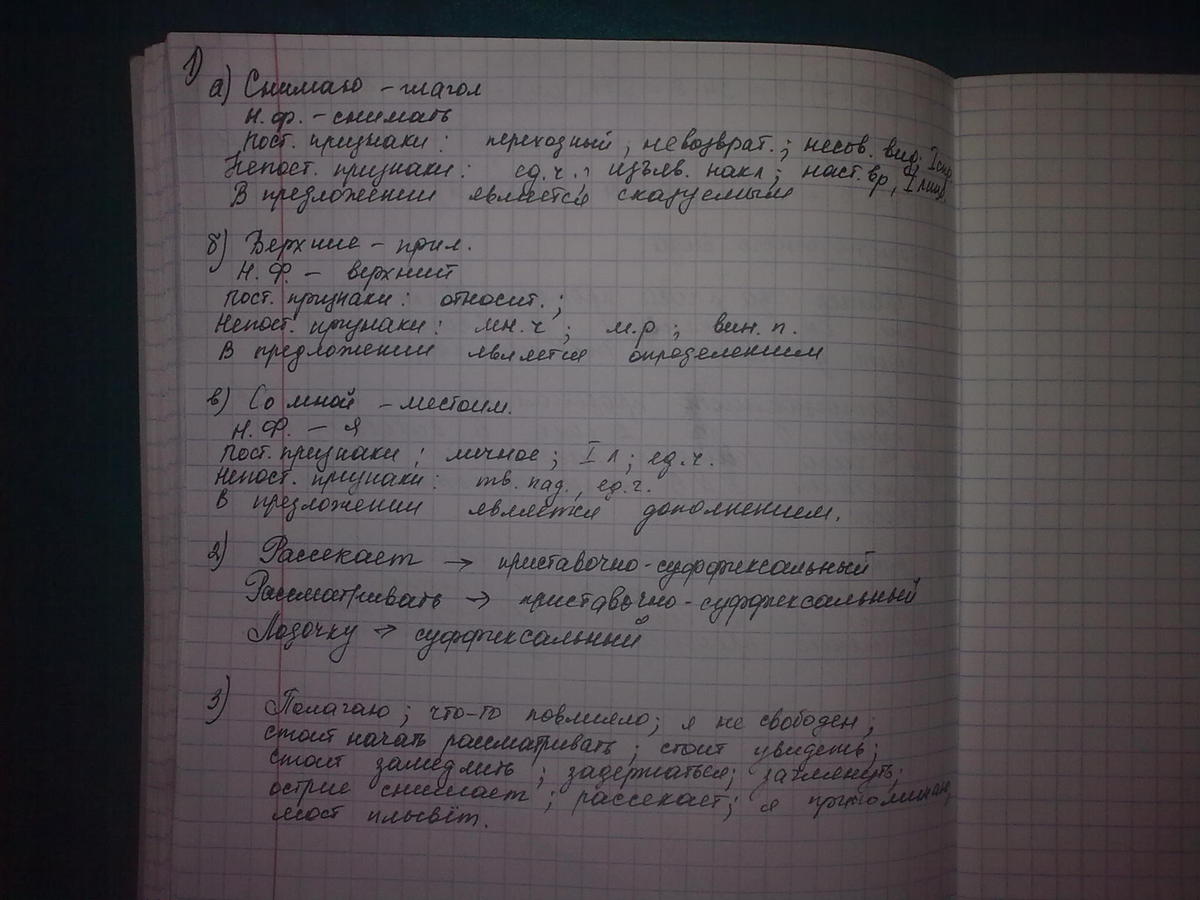 1)
а) Снимаю – глагол
Н.ф. – снимать
Пост. признаки: переходный, невозврат.; несов. вид; I спр
Непост. признаки: ед.ч.; изъяв. накл; наст.вр, I лицо
В предложении является сказуемым
б) Верхние – прил.
Н.Ф. – верхний
Пост. признаки: относит.;
Непост. признаки: мн.ч; м.р; вин. п.
В предложении является определением
в) Со мной – местоим.
Н.Ф. – Я
Пост. признаки: личное; I л; ед.ч.
Непост. признаки: тв. пад., ед.ч.
В предложении является дополнением.
2) Рассекает → приставочно-суффиксальный
Рассматривать → приставочно-суффиксальный
Лодочку → суффиксальный
3) Полагаю; что-то повлияло; я не свободен;
стоит начать рассматривать; стоит увидеть;
стоит замедлить; задержаться; заглянуть;
острие снимает; рассекает; я припоминаю,
мост плывёт.